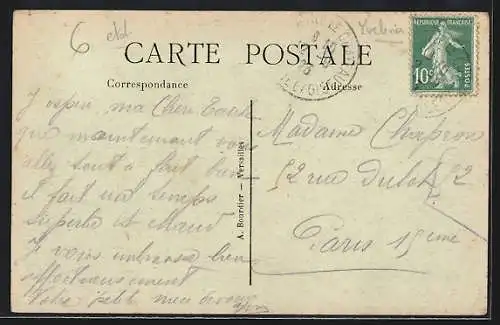 6
CARTE POSTALE
Correspondance
Adresse
RÉPUBLIQUE FRANÇAISE
10c
POSTES
J'espère ma Chère
que maintenant vous
allez tout à fait bien
il fait un temps
superbe et chaud
Je vous embrasse bien
affectueusement
Votre petit
A. Bourdier — Versailles
Madame Chapron
52 rue Dutot 52
Paris 15ème